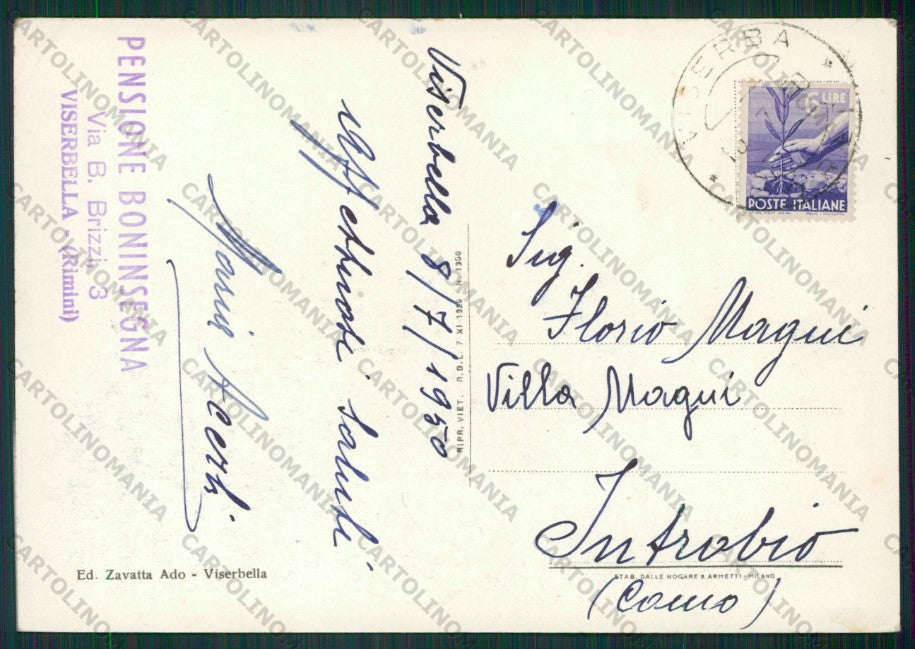 PENSIONE BONINSEGNA
Via B. Brizzi, 3
VISERBELLA - (Rimini)
Viserbella 8/7/1950
Affettuosi saluti
Maria Acerbi
Ed. Zavatta Ado - Viserbella
RIPR. VIET. R.D.L. 7 XI 1925 N. 1950
VISERBA
6 LIRE
POSTE ITALIANE
Sig.
Florio Magni
Villa Magni
Introbio
(Como)
STAB. DALLE NOGARE & ARMETTI - MILANO
CARTOLINOMANIA